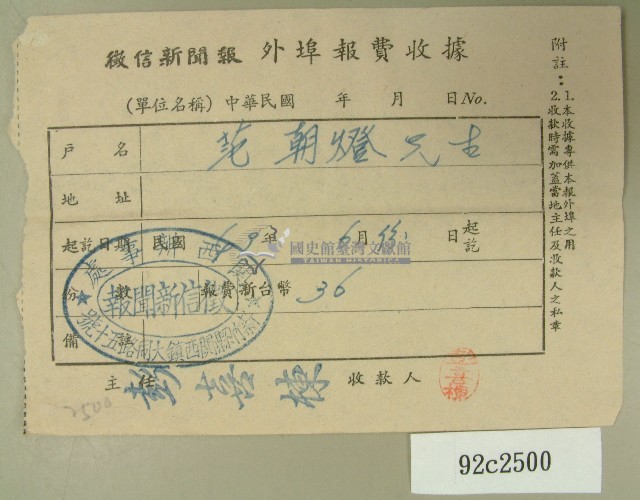 徵信新聞報 外埠報費收據
(單位名稱) 中華民國 年 月 日 No.
戶名 范朝燈
地址
起訖日期 民國 年 6月 日 起訖
份數 報費新台幣 36
備註
主任 彭喜棟 收款人
附註：
1.本收據專供本報外埠之用
2.收款時需加蓋當地主任及收款人之私章
關西辦事處
徵信新聞報
新竹縣關西鎮大同路五十號
國史館臺灣文獻館
TAIWAN HISTORICA
2500
92c2500